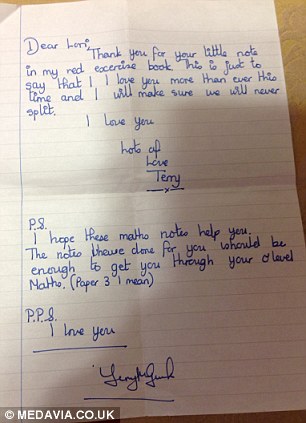 Dear Lori,
Thank you for your little note
in my red exercise book. This is just to
say that I I love you more than ever this
time and I will make sure we will never
split.
I love you
Lots of
Love
Terry
x
P.S.
I hope these maths notes help you.
The notes I have done for you should be
enough to get you through your O'level
Maths. (Paper 3 I mean)
P.P.S.
I love you
© MEDAVIA.CO.UK